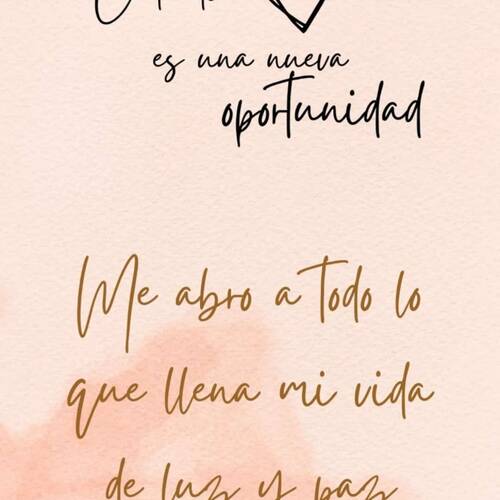 es una nueva
oportunidad
Me abro a todo lo
que llena mi vida
de luz y paz